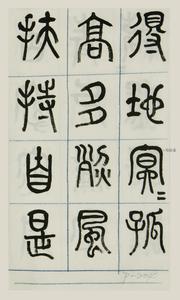 得地冥〻孤
高多烈風
扶持自是